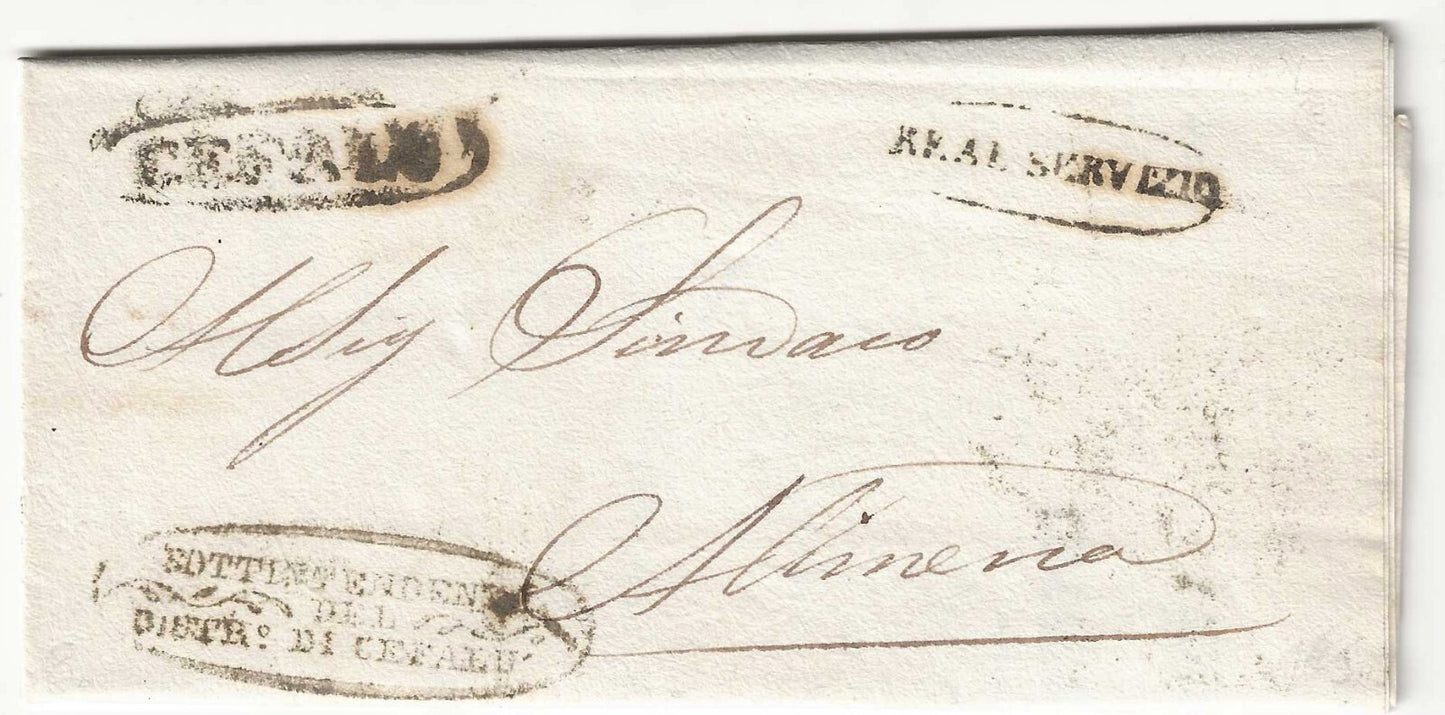 CEFALU
REAL SERVIZIO
Al Sig Sindaco
Alimena
SOTTINTENDEN
DEL
DISTR.º DI CEFALU